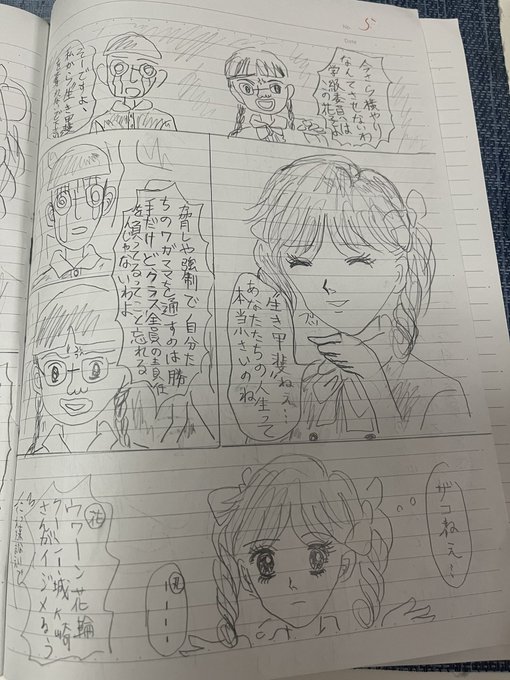 No. 5
Date
今さら横やり
なんてさせないわ
学級委員は
の花そよ
そーですよ、
私から生き甲斐
生き甲斐ねえ…
あなたたちの人生って
本当小さいのね
脅しや強制で自分た
ちのワガママを通すのは勝
手だけど、クラス全員の責任
を負ってるってこと忘れる
んじゃないわよ
ザコねえ…
花
ウワーン花輪
クーン!城ヶ崎
さんがイジメるぅ